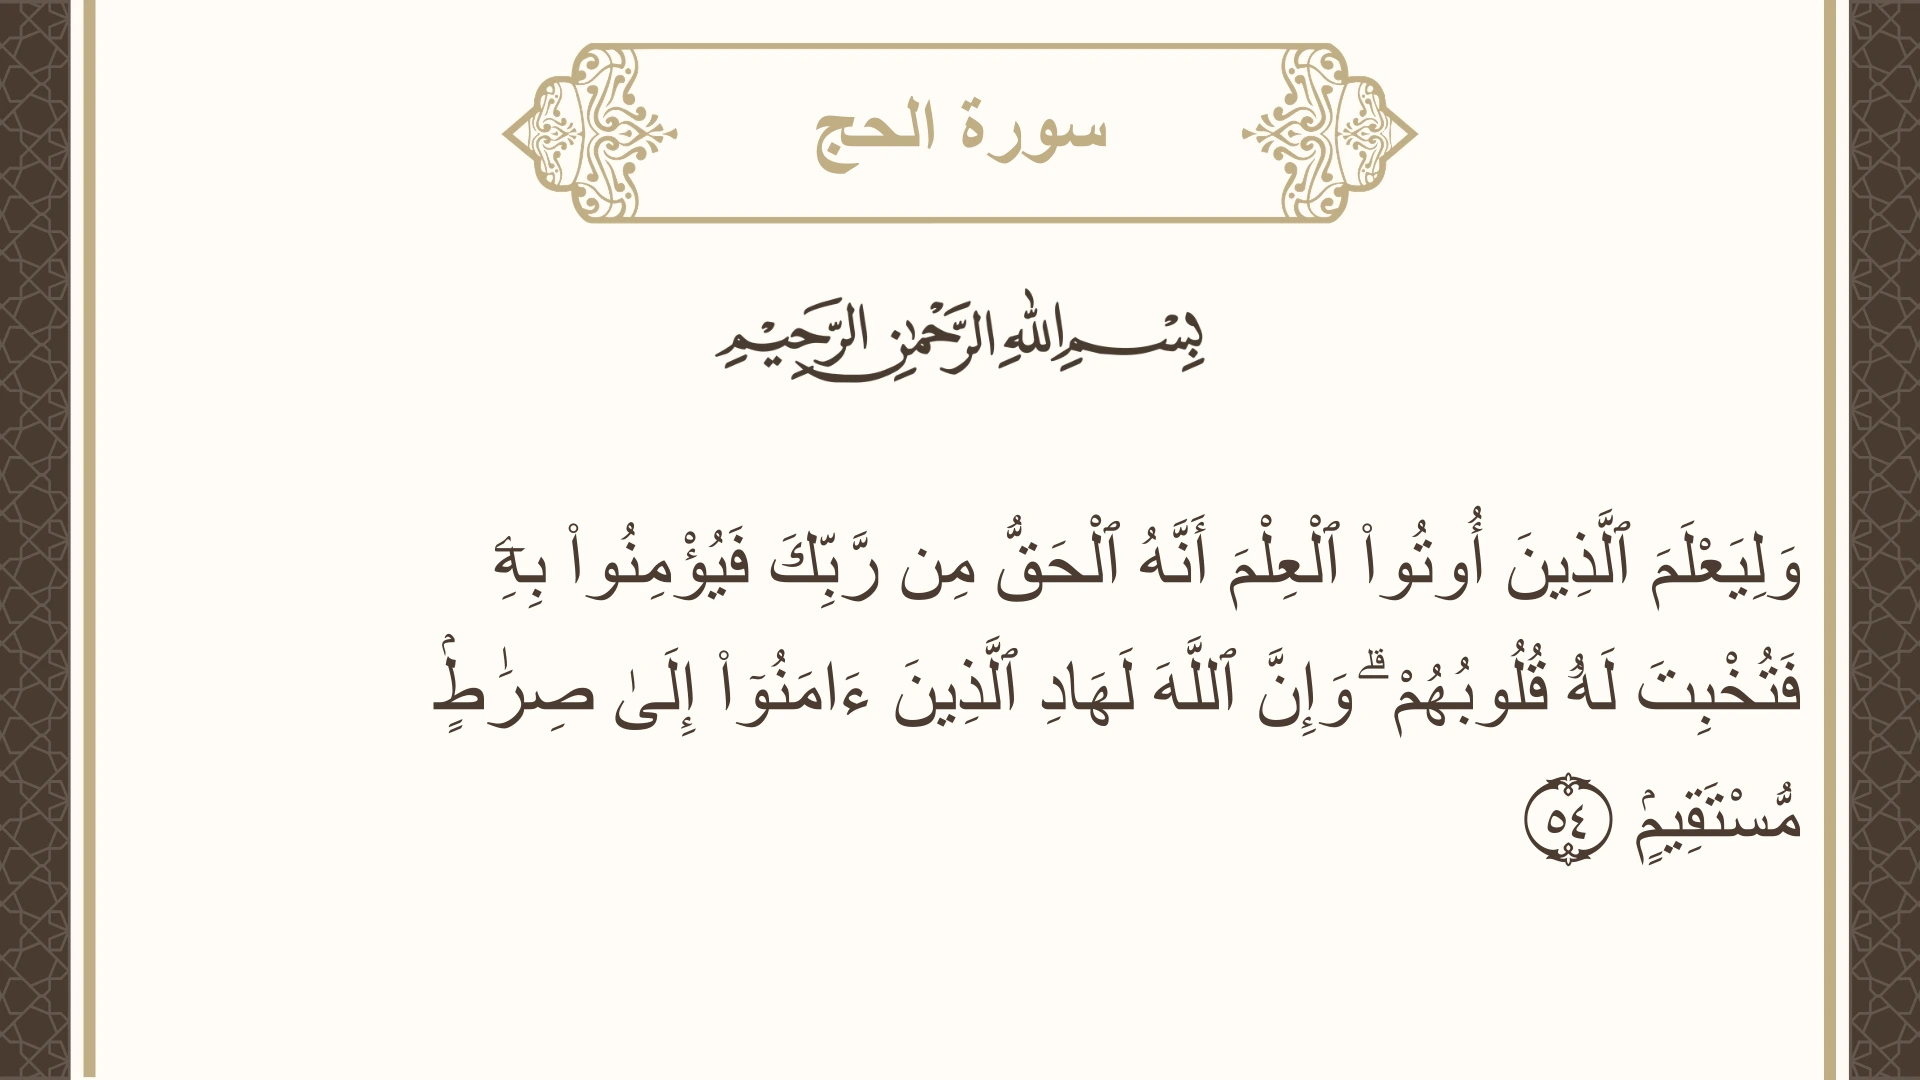 سورة الحج
بِسْمِ اللهِ الرَّحْمٰنِ الرَّحِيْمِ
وَلِيَعْلَمَ ٱلَّذِينَ أُوتُوا۟ ٱلْعِلْمَ أَنَّهُ ٱلْحَقُّ مِن رَّبِّكَ فَيُؤْمِنُوا۟ بِهِۦ
فَتُخْبِتَ لَهُۥ قُلُوبُهُمْ ۗ وَإِنَّ ٱللَّهَ لَهَادِ ٱلَّذِينَ ءَامَنُوٓا۟ إِلَىٰ صِرَٰطٍۢ
مُّسْتَقِيمٍۢ ٥٤